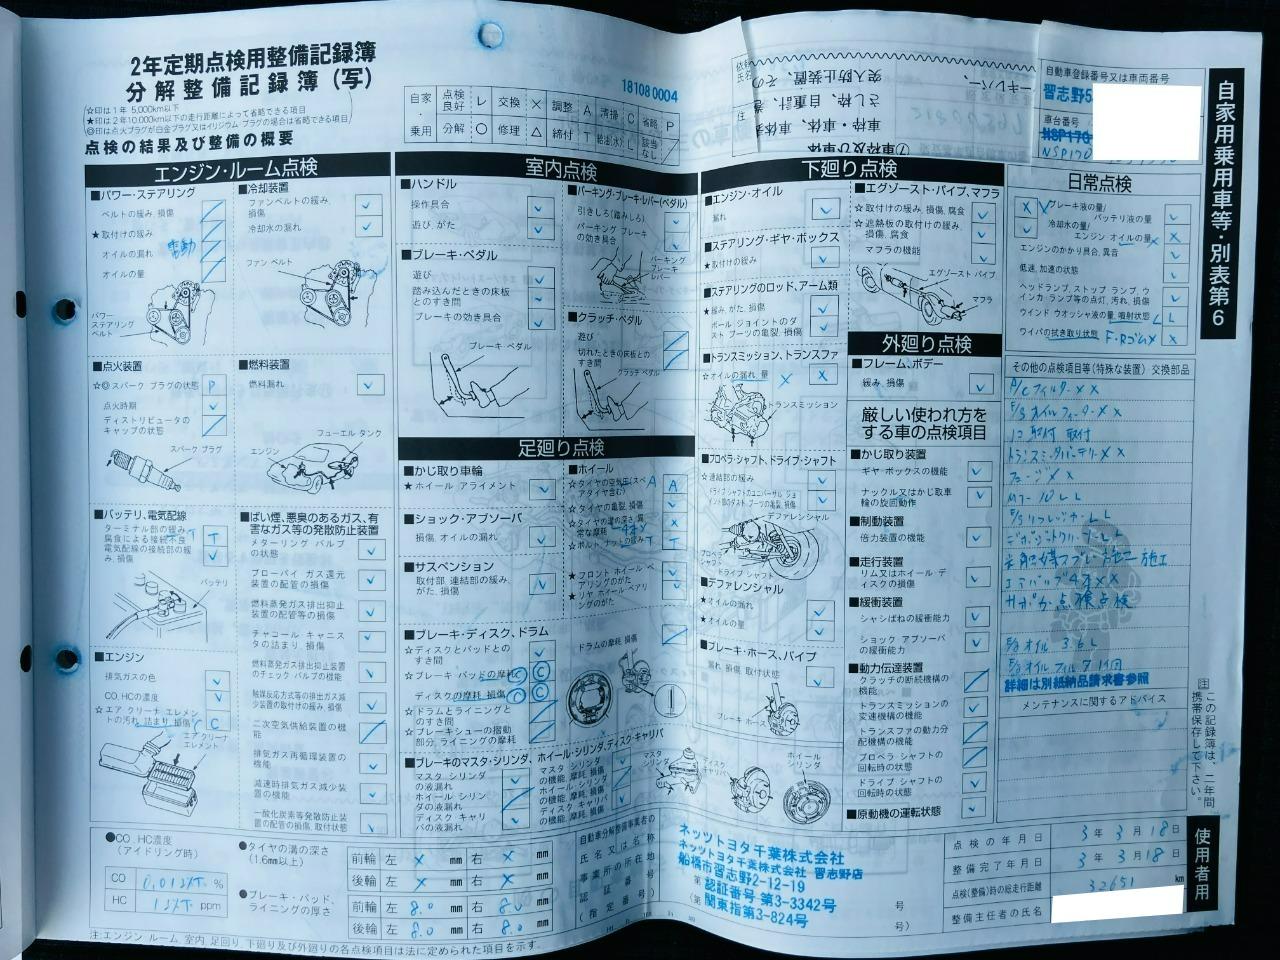 2年定期点検用整備記録簿
分解整備記録簿(写)
☆印は1年 5,000km以下
★印は2年10,000km以下の走行距離によって省略できる項目
◎印は点火プラグが白金プラグ又はイリジウム・プラグの場合は省略できる項目
点検の結果及び整備の概要
181080004
自家・乗用
点検良好 レ 交換 × 調整 A 清掃 C 省略 P
分解 ○ 修理 △ 締付 T 給油(水) L 該当なし ／
自動車登録番号又は車両番号
習志野5
車台番号
NSP170
NSP170
自家用乗用車等・別表第6
エンジン・ルーム点検
■パワー・ステアリング
ベルトの緩み、損傷
★取付けの緩み
オイルの漏れ
オイルの量
電動
パワーステアリングベルト
■冷却装置
ファンベルトの緩み、損傷
冷却水の漏れ
ファン ベルト
■点火装置
☆◎スパーク プラグの状態 P
点火時期
ディストリビュータのキャップの状態
スパーク プラグ
■燃料装置
燃料漏れ
フューエル タンク
エンジン
■バッテリ、電気配線
ターミナル部の緩み、腐食による接続不良 T
電気配線の接続部の緩み、損傷
バッテリ
■ばい煙、悪臭のあるガス、有害なガス等の発散防止装置
メターリング バルブの状態
ブローバイ ガス還元装置の配管の損傷
燃料蒸発ガス排出抑止装置の配管等の損傷
チャコール キャニスタの詰まり、損傷
燃料蒸発ガス排出抑止装置のチェック バルブの機能
触媒反応方式等の排出ガス減少装置の取付けの緩み、損傷
二次空気供給装置の機能
排気ガス再循環装置の機能
減速時排気ガス減少装置の機能
一酸化炭素等発散防止装置の配管の損傷、取付状態
■エンジン
排気ガスの色
CO、HCの濃度
☆エア クリーナ エレメントの汚れ、詰まり、損傷 C
エア クリーナ エレメント
室内点検
■ハンドル
操作具合
遊び、がた
■ブレーキ・ペダル
遊び
踏み込んだときの床板とのすき間
ブレーキの効き具合
ブレーキ・ペダル
■パーキング・ブレーキ・レバー(ペダル)
引きしろ(踏みしろ)
パーキング ブレーキの効き具合
パーキング ブレーキ レバー
■クラッチ・ペダル
遊び
切れたときの床板とのすき間
クラッチ ペダル
足廻り点検
■かじ取り車輪
★ホイール アライメント
■ショック・アブソーバ
損傷、オイルの漏れ
■サスペンション
取付部、連結部の緩み、がた、損傷
■ホイール
☆タイヤの空気圧(スペアタイヤ含む) A
☆タイヤの亀裂、損傷
☆タイヤの溝の深さ、異常な摩耗 ×
☆ボルト、ナットの緩み T
★フロント ホイール ベアリングのがた
★リヤ ホイール ベアリングのがた
■ブレーキ・ディスク、ドラム
☆ディスクとパッドとのすき間
☆ブレーキ・パッドの摩耗 C
ディスクの摩耗、損傷 C
☆ドラムとライニングとのすき間
☆ブレーキシューの摺動部分、ライニングの摩耗
ドラムの摩耗、損傷
■ブレーキのマスタ・シリンダ、ホイール・シリンダ、ディスク・キャリパ
マスタ シリンダの液漏れ
ホイール・シリンダの液漏れ
ディスク キャリパの液漏れ
マスタ シリンダの機能、摩耗、損傷
ホイール・シリンダの機能、摩耗、損傷
ディスク キャリパの機能、摩耗、損傷
マスタ シリンダ
ディスク キャリパ
ホイール シリンダ
下廻り点検
■エンジン・オイル
漏れ
■ステアリング・ギヤ・ボックス
★取付けの緩み
■ステアリングのロッド、アーム類
★緩み、がた、損傷
ボール ジョイントのダスト ブーツの亀裂、損傷
■トランスミッション、トランスファ
☆オイルの漏れ、量 × ×
トランスミッション
■プロペラ・シャフト、ドライブ・シャフト
☆連結部の緩み
ドライブ シャフトのユニバーサル ジョイント部のダスト ブーツの亀裂、損傷
デファレンシャル
プロペラ シャフト
ドライブ シャフト
■デファレンシャル
★オイルの漏れ
★オイルの量
■ブレーキ・ホース、パイプ
漏れ、損傷、取付状態
ブレーキ ホース
■エグゾースト・パイプ、マフラ
☆取付けの緩み、損傷、腐食
☆遮熱板の取付けの緩み、損傷、腐食
マフラの機能
エグゾースト パイプ
マフラ
外廻り点検
■フレーム、ボデー
緩み、損傷
厳しい使われ方をする車の点検項目
■かじ取り装置
ギヤ・ボックスの機能
ナックル又はかじ取車輪の旋回動作
■制動装置
倍力装置の機能
■走行装置
リム又はホイール・ディスクの損傷
■緩衝装置
シャシばねの緩衝能力
ショック アブソーバの緩衝能力
■動力伝達装置
クラッチの断続機構の機能
トランスミッションの変速機構の機能
トランスファの動力分配機構の機能
プロペラ シャフトの回転時の状態
ドライブ シャフトの回転時の状態
■原動機の運転状態
日常点検
ブレーキ液の量
バッテリ液の量
冷却水の量
エンジン オイルの量 ×
エンジンのかかり具合、異音
低速、加速の状態
ヘッドランプ、ストップ ランプ、ウインカ・ランプ等の点灯、汚れ、損傷
ウインド ウオッシャ液の量、噴射状態 L L
ワイパの拭き取り状態 F・Rゴム× ×
その他の点検項目等(特殊な装置)交換部品
A/Cフィルター × ×
取付 取付
施工
点検 点検
オイル 3.6L
詳細は別紙納品請求書参照
メンテナンスに関するアドバイス
注 この記録簿は、二年間携帯保存して下さい。
●CO、HC濃度
(アイドリング時)
CO 0.01以下 %
HC 1以下 ppm
●タイヤの溝の深さ
(1.6mm以上)
前輪 左 × mm 右 × mm
後輪 左 × mm 右 × mm
●ブレーキ・パッド、ライニングの厚さ
前輪 左 8.0 mm 右 8.0 mm
後輪 左 8.0 mm 右 8.0 mm
自動車分解整備事業者の氏名又は名称
事業所の所在地
認証番号
(指定番号)
ネッツトヨタ千葉株式会社
ネッツトヨタ千葉株式会社 習志野店
船橋市習志野2-12-19
第 認証番号 第3-3342号 号
(第 関東指第3-824号 号)
点検の年月日 3年3月18日
整備完了年月日 3年3月18日
点検(整備)時の総走行距離 32651 km
整備主任者の氏名
使用者用
注:エンジン ルーム、室内、足廻り、下廻り及び外廻りの各点検項目は法に定められた項目を示す。